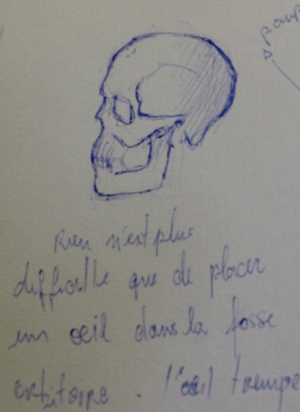 paup
Rien n'est plus
difficile que de placer
un oeil dans la fosse
orbitaire. l'oeil trempe